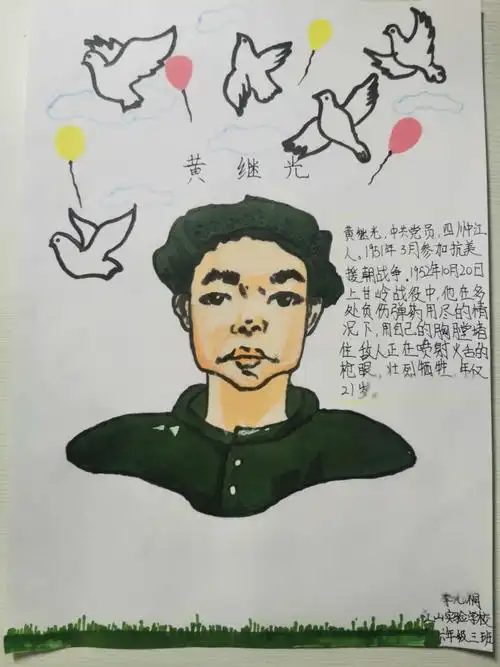 黄继光
黄继光，中共党员，四川中江
人，1951年3月参加抗美
援朝战争，1952年10月20日
上甘岭战役中，他在多
处负伤弹药用尽的情
况下，用自己的胸膛堵
住敌人正在喷射火舌的
枪眼，壮烈牺牲，年仅
21岁。
桐
江山实验学校
六年级三班